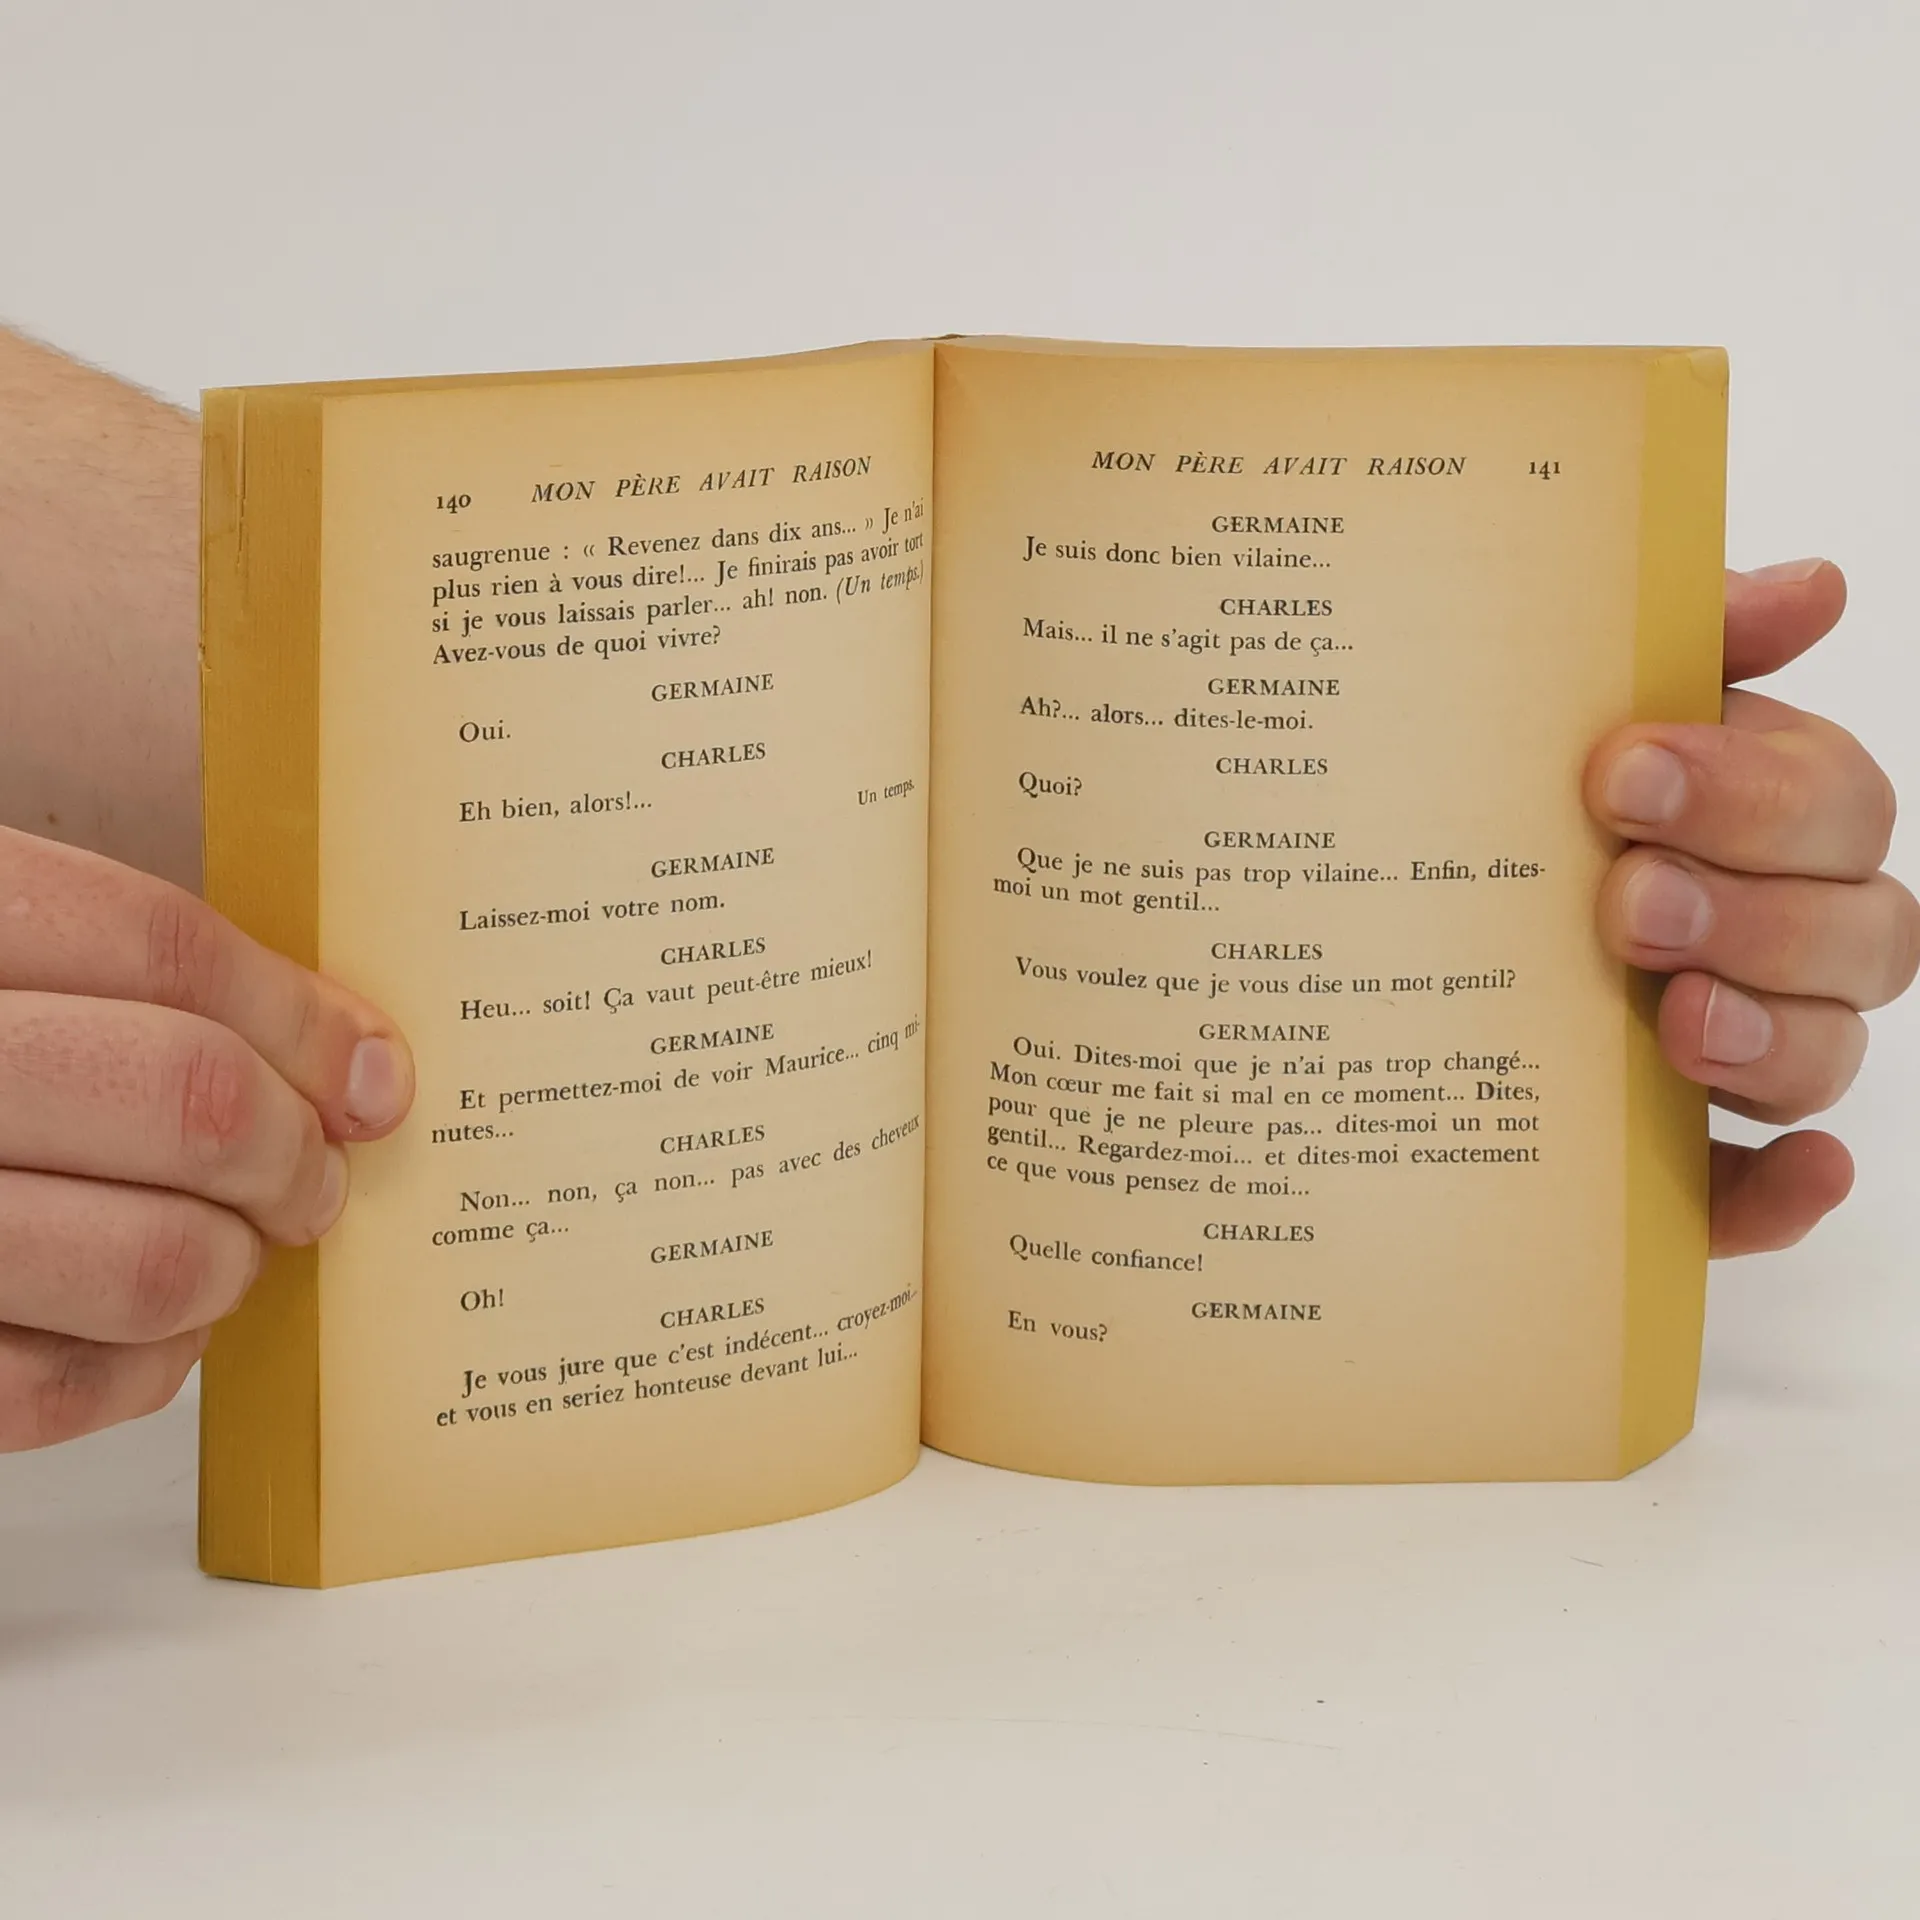 140 MON PÈRE AVAIT RAISON
saugrenue : « Revenez dans dix ans... » Je n'ai
plus rien à vous dire!... Je finirais pas avoir tort
si je vous laissais parler... ah! non. (Un temps.)
Avez-vous de quoi vivre?
GERMAINE
Oui.
CHARLES
Eh bien, alors!...
Un temps.
GERMAINE
Laissez-moi votre nom.
CHARLES
Heu... soit! Ça vaut peut-être mieux!
GERMAINE
Et permettez-moi de voir Maurice... cinq mi-
nutes...
CHARLES
Non... non, ça non... pas avec des cheveux
comme ça...
GERMAINE
Oh!
CHARLES
Je vous jure que c'est indécent... croyez-moi...
et vous en seriez honteuse devant lui...
MON PÈRE AVAIT RAISON 141
GERMAINE
Je suis donc bien vilaine...
CHARLES
Mais... il ne s'agit pas de ça...
GERMAINE
Ah?... alors... dites-le-moi.
CHARLES
Quoi?
GERMAINE
Que je ne suis pas trop vilaine... Enfin, dites-
moi un mot gentil...
CHARLES
Vous voulez que je vous dise un mot gentil?
GERMAINE
Oui. Dites-moi que je n'ai pas trop changé...
Mon cœur me fait si mal en ce moment... Dites,
pour que je ne pleure pas... dites-moi un mot
gentil... Regardez-moi... et dites-moi exactement
ce que vous pensez de moi...
CHARLES
Quelle confiance!
GERMAINE
En vous?